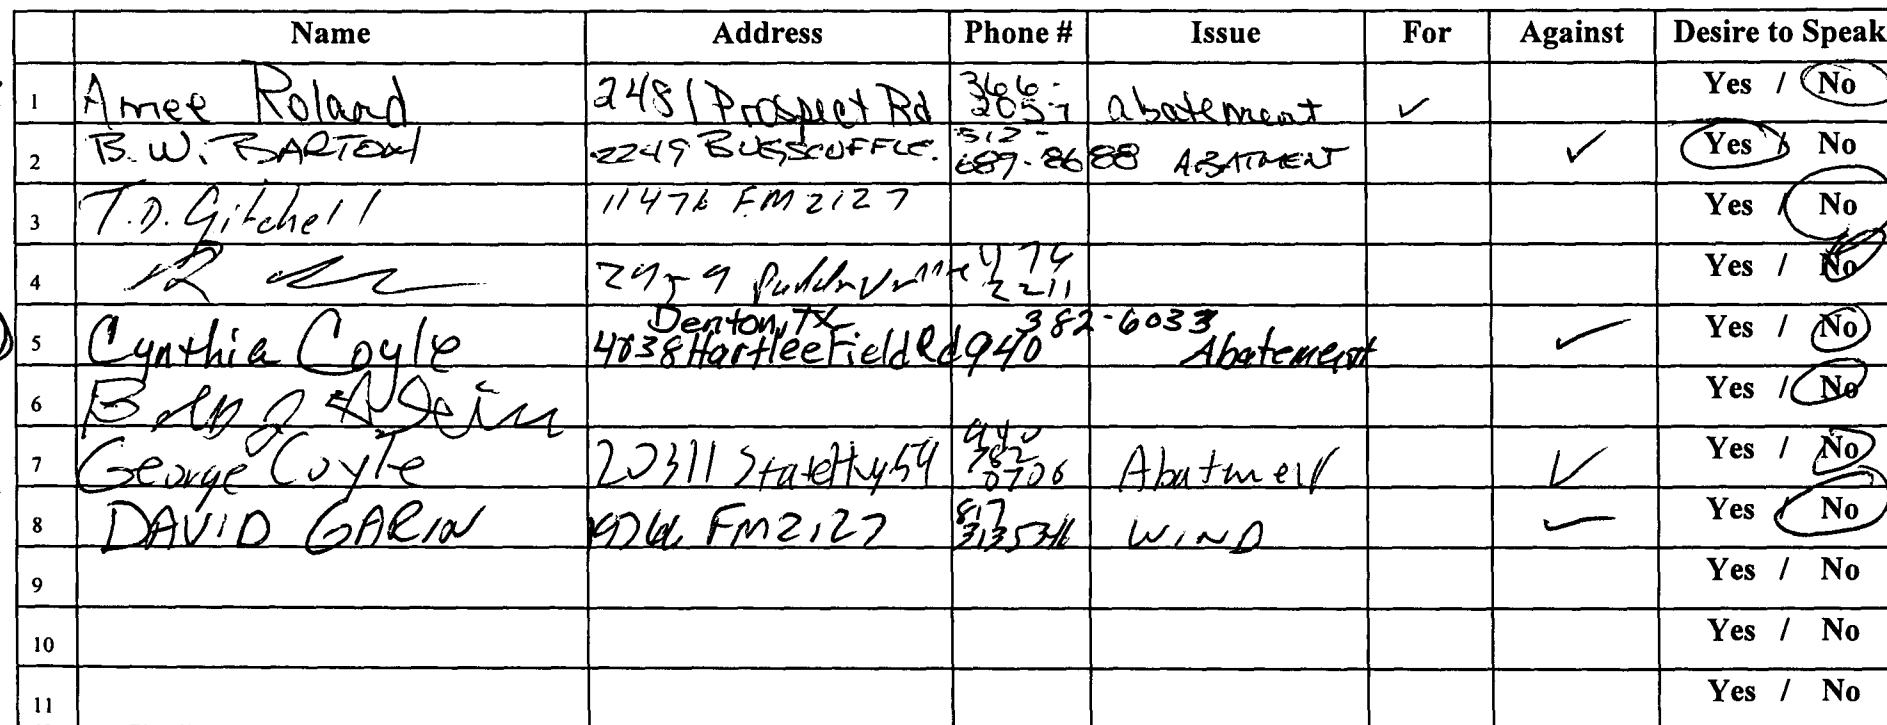 Name Address Phone # Issue For Against Desire to Speak
1 Amee Roland 2481 Prospect Rd 366-2057 abatement ✓ Yes / No
2 B.W. BARTON 2249 BUGSCUFFLE. 512-689-8688 ABATMENT ✓ Yes / No
3 T.D. Gitchell 11476 FM 2127 Yes / No
4 2211 Yes / No
5 Cynthia Coyle 4038 Hartlee Field Rd Denton, TX 940 382-6033 Abatement ✓ Yes / No
6 Yes / No
7 George Coyle 20311 State Hwy 59 940 782 0706 ✓ Yes / No
8 DAVID GARIN FM 2127 817 WIND ✓ Yes / No
9 Yes / No
10 Yes / No
11 Yes / No